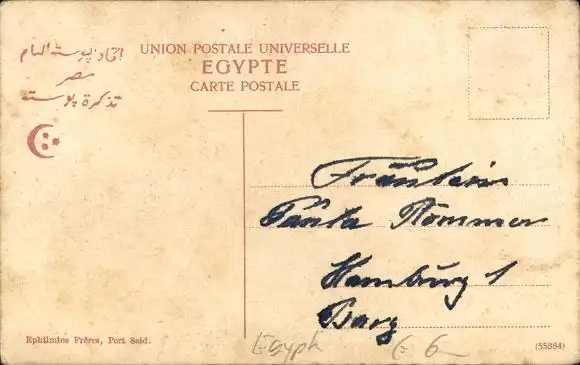 اتحاد پوسته العام
مصر
تذكرة پوسته
UNION POSTALE UNIVERSELLE
EGYPTE
CARTE POSTALE
Fräulein
Römmer
Hamburg 1
Ephtimios Frères, Port Said.
Egypt
6-
(55884)